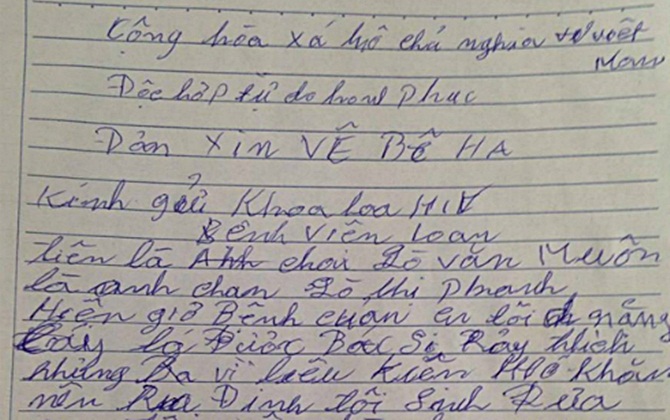 Cộng hòa xá hộ chả nghĩa việt
Mam
Độc hâp tự do hanh Phuc
Dản XIN VỀ BỀ HA
Kính gửi Khoa loa HIV
Bênh Viên Loan
tiên là Anh chai Lò văn Muôn
là anh chan Lò thi Phanh
Hiện giờ Bênh cuản en lôi nặng
là Được Bác Sĩ Rảy thich
nhưng Ba vì liêu Kiên Khô Khăn
nên Rua Đinh lôi Sinh Rửa